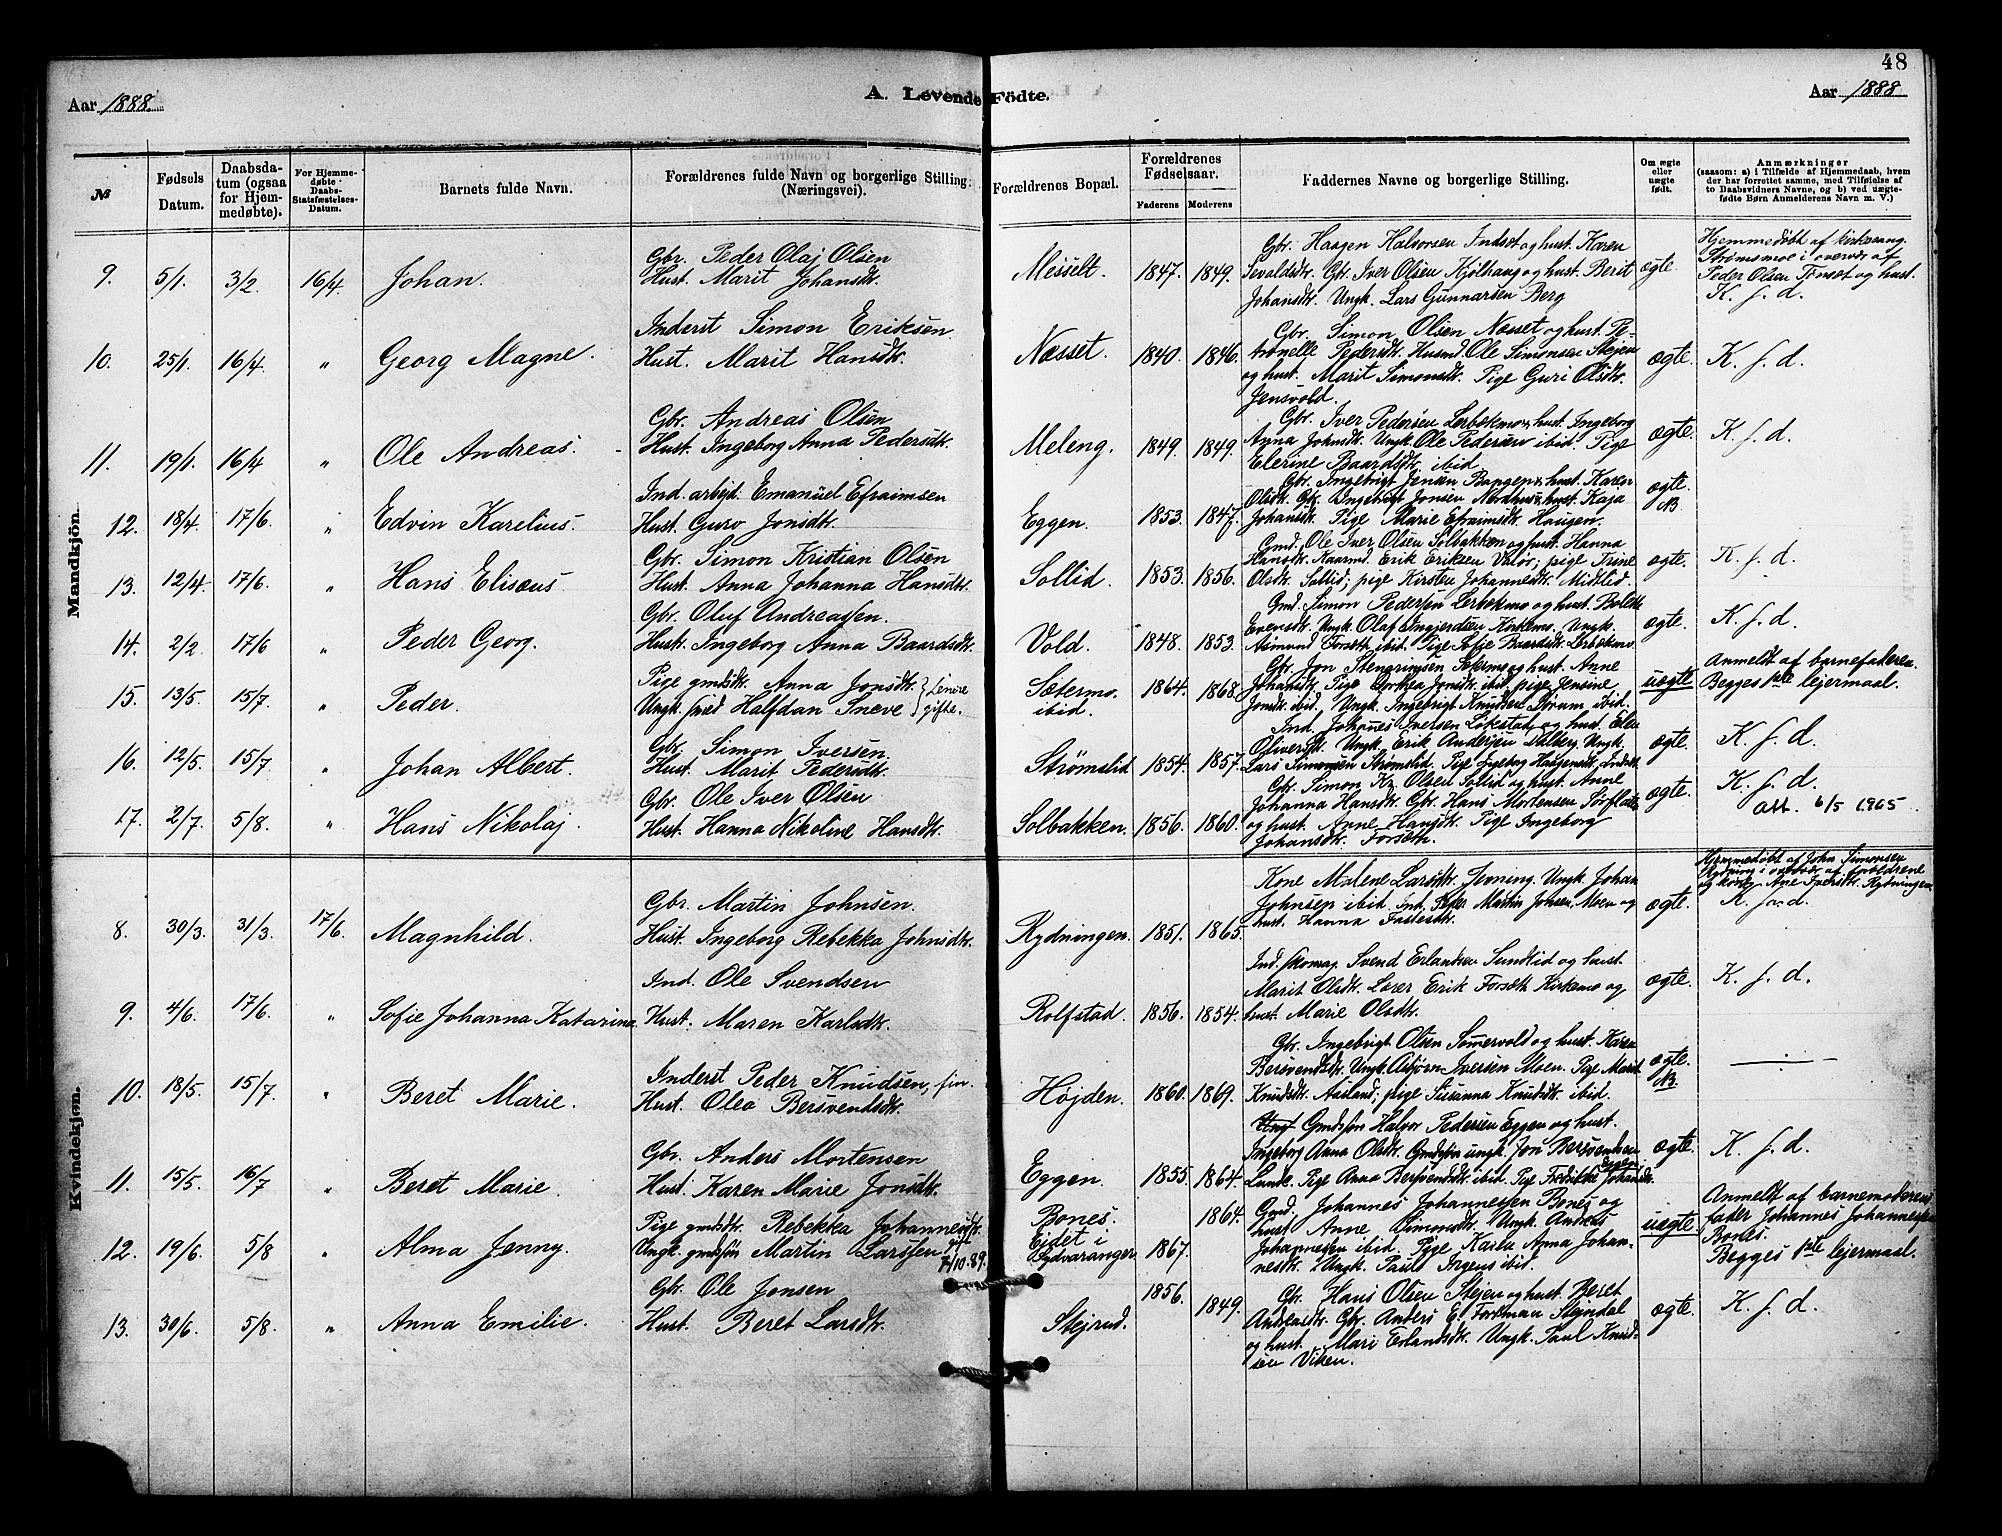 48
Aar 1888.
A. Levende Födte.
Aar 1888
№
Fødsels Datum.
Daabsdatum (ogsaa for Hjemmedøbte).
For Hjemmedøbte Daabs-Statsfæstelses-Datum.
Barnets fulde Navn.
Forældrenes fulde Navn og borgerlige Stilling. (Næringsvei).
Forældrenes Bopæl.
Forældrenes Fødselsaar.
Faderens
Moderens
Faddernes Navne og borgerlige Stilling.
Om ægte eller uægte født.
Anmærkninger
(saasom: a) i Tilfælde af Hjemmedaab, hvem
der har forrettet samme, med Tilføielse af
to Daabsvidners Navne, og b) ved uægte-
fødte Børn Anmelderens Navn m. V.)
Mandkjön.
9. 5/1. 3/2. 16/4 Johan.
Gbr. Peder Olaj Olsen
Hust. Marit Johansdt.
Messelt. 1847. 1849.
Gbr. Haagen Halvorsen Indset og hust. Karen
Sevaldsdt. Gbr. Iver Olsen Kjölhaug og hust. Berit
Johansdt. Ungk. Lars Gunnarsen Berg
ægte
Hjemmedöbt af kirkesang.
Strømsmoe i overvær af
Peder Olsen Tronset og hust.
K. f. d.
10. 25/1. 16/4. " Georg Magne.
Inderst Simon Eriksen
Hust. Marit Hansdt.
Næsset. 1840. 1846.
Gbr. Simon Olsen Næsset og hust. Pe-
tronelle Pedersdt. Husmd. Ole Simonsen Stejen
og hust. Marit Simonsdt. Pige Guri Olsdt.
Jensvold.
ægte. K. f. d.
11. 19/1. 16/4 " Ole Andreas.
Gbr. Andreas Olsen
Hust. Ingeborg Anna Pedersdt.
Meleng. 1849. 1849.
Gbr. Iver Pedersen Lerbekmo og hust. Ingeborg
Anna Johnsdt. Ungk. Ole Pedersen ibid. Pige
Elerine Baardsdt. ibid
ægte. K. f. d.
12. 18/4 17/6. " Edvin Karelius.
Ind. arbejd. Emanuel Efraimsen
Hust. Guro Jonsdtr.
Eggen. 1853. 1847.
Gbr. Ingebrigt Jensen Bangen og hust. Karen
Olsdt. Gbr. Ingebrigt Jonsen Nordhus og hust. Kaja
Johansdt. Pige Marie Efraimsdt. Haugen.
ægte. NB.
13. 12/4 17/6. " Hans Elisæus.
Gbr. Simon Kristian Olsen
Hust. Anna Johanna Hansdt.
Sollid. 1853. 1856.
Gmd. Ole Iver Olsen Solbakken og hust. Hanna
Hansdt. Kaarmd. Erik Eriksen Valov; pige Trine
Olsdt. Sollid; pige Kirsten Johannesdt. Midtlid.
ægte. K. f. d.
14. 2/2. 17/6 " Peder Georg.
Gbr. Oluf Andreassen.
Hust. Ingeborg Anna Baardsdt.
Vold. 1848. 1853.
Gmd. Simon Pedersen Lerbekmo og hust. Bolette
Evensdt. Ungk. Olaf Ingjerdsen Kirkemo. Ungk.
Asmund Forseth ibid. Pige Sofie Baardsdt. Lerbekmo.
ægte. K. f. d.
15. 13/5. 15/7. " Peder.
Pige gmdsdt. Anna Jonsdt.
Ungk. smed Halfdan Sneve } senere gifte.
Sætermo. ibid. 1864. 1868.
Gbr. Jon Stengrimsen Setermo og hust. Anne
Johansdt. Pige Dorthea Jonsdt. ibid. pige Jensine
Jonsdt. ibid. Ungk. Ingebrigt Knudsen Strum ibid.
uægte
Anmeldt af barnefaderen.
Begges 1ste lejermaal.
16. 12/5. 15/7. " Johan Albert.
Gbr. Simon Iversen
Hust. Marit Pedersdt.
Strømslid 1854. 1857.
Ind. Johanes Iversen Løkstad og hust. Elen
Oliversdt. Ungk. Erik Andersen Dalberg. Ungk.
Lars Simonsen Strømslid. Pige Ingeborg Haagensdt. Indset.
ægte. K. f. d.
17. 2/7. 5/8. " Hans Nikolaj.
Gbr. Ole Iver Olsen
Hust. Hanna Nikoline Hansdt.
Solbakken. 1856. 1860.
Gbr. Simon Kr. Olsen Sollid og hust. Anne
Johanna Hansdt. Gbr. Hans Mortensen Sörflaten
og hust. Anne Hansdt. Pige Ingeborg
Johansdt. Forseth.
ægte. K. f. d.
att. 6/5 1965
Kvindekjøn.
8. 30/3. 31/3. 17/6. Magnhild.
Gbr. Martin Johnsen.
Hust. Ingeborg Rebekka Johnsdt.
Rydningen. 1851. 1865.
Kone Malene Larsdt. Jevning. Ungk. Johan
Johnsen ibid. Ind. Peder Martin Johsen Moen og
hust. Hanna Fastesdt.
ægte.
Hjemmedöbt af John Simonsen
Rydning i overvær af forældrene
og kone Ane Iversdt. Rydningen.
K. f. d.
9. 4/6. 17/6. " Sofie Johanna Katarina.
Ind. Ole Svendsen
Hust. Maren Karlsdt.
Rolfstad. 1856. 1854.
Ind. skomag. Svend Erlandsen Sundlid og hust.
Marit Olsdt. Lærer Erik Forseth Kirkemo og
hust. Marie Olsdt.
ægte. K. f. d.
10. 18/5. 15/7. " Beret Marie.
Inderst Peder Knudsen,
Hust. Olea Bersvendsdt.
Højden. 1860. 1869.
Gbr. Ingebrigt Olsen Sömervold og hust. Karen
Bersvendsdt. Ungk. Asbjörn Iversen Moen. Pige Marit
Knudsdt. Aasland; pige Susanna Knudsdt. ibid.
ægte. NB.
11. 15/5. 16/7 " Beret Marie.
Gbr. Anders Mortensen
Hust. Karen Marie Jonsdt.
Eggen. 1855. 1864.
Ungk. Gmdsøn Halvor Pedersen Eggen og hust.
Ingeborg Anna Olsdt. Gmdsøn ungk. Jon Bersvendsen
Lunde. Pige Anna Bersvendsdt. ibid. Pige Fredrikke Johansdt. Eggen
ægte. K. f. d.
12. 19/6. 5/8. " Alma Jenny.
Pige gmdsdt. Rebekka Johannesdt.
Ungk. gmdsøn Martin Larssen 7/10.89.
Bones. Eidet i Sydvaranger 1867. 1864.
Gmd. Johannes Johannessen Bones og
hust. Anne Simonsdt. Ungk. Andreas
Johannessen ibid. Pige Karla Anna Johan-
nesdt. Ungk. Paul Jrgens ibid.
uægte
Anmeldt af barnemoderens
fader Johannes Johannessen
Bones.
Begges 1ste lejermaal.
13. 30/6. 5/8. " Anna Emilie.
Gbr. Ole Jonsen
Hust. Beret Larsdt.
Stejrud. 1856. 1849.
Gbr. Hans Olsen Stejen og hust. Beret
Andreasdt. Gbr. Anders E. Fordman Stejndal
og hust. Mari Erlandsdt. Ungk. Paul Knud-
sen Viken.
ægte. K. f. d.